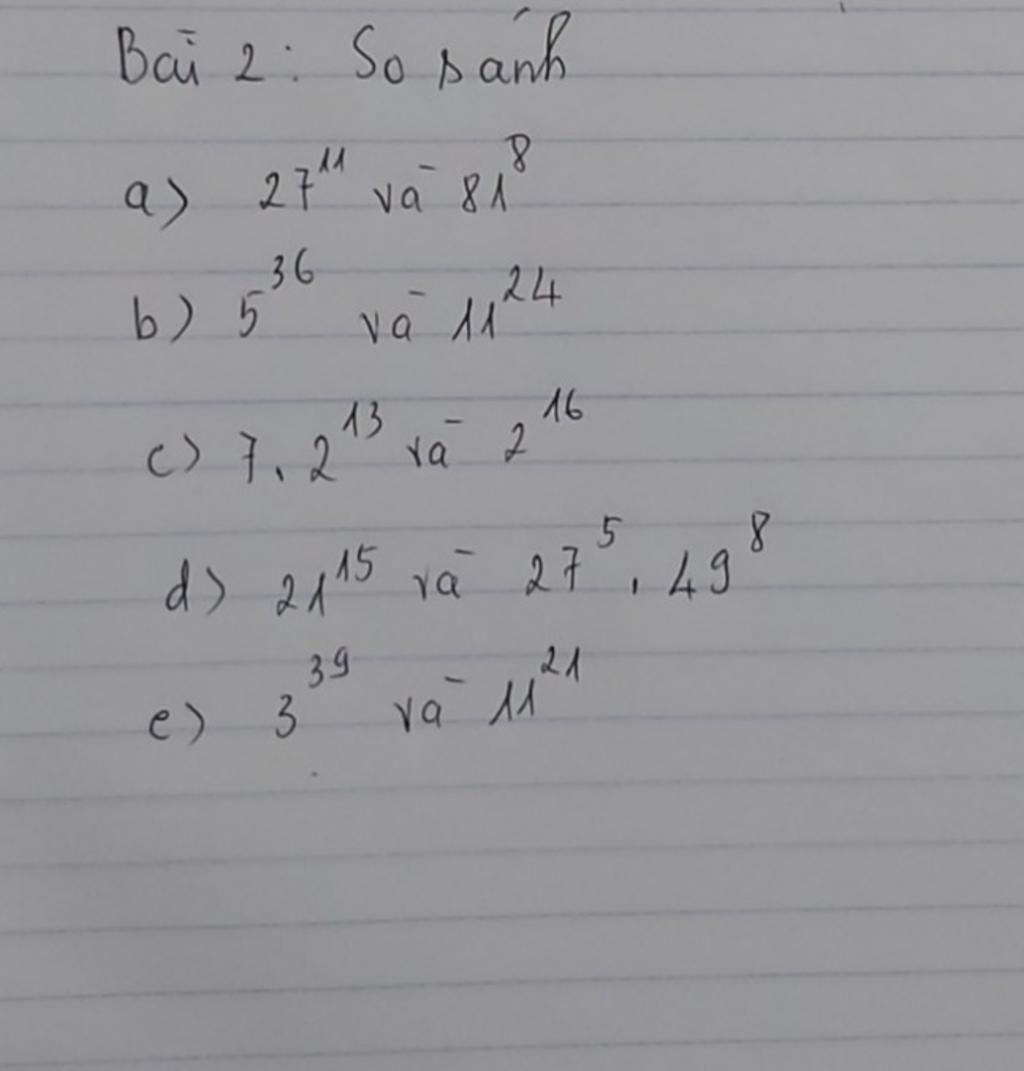 Bài 2: So sánh
a) 27¹¹ và 81⁸
b) 5³⁶ và 11²⁴
c) 7.2¹³ và 2¹⁶
d) 21¹⁵ và 27⁵.49⁸
e) 3³⁹ và 11²¹